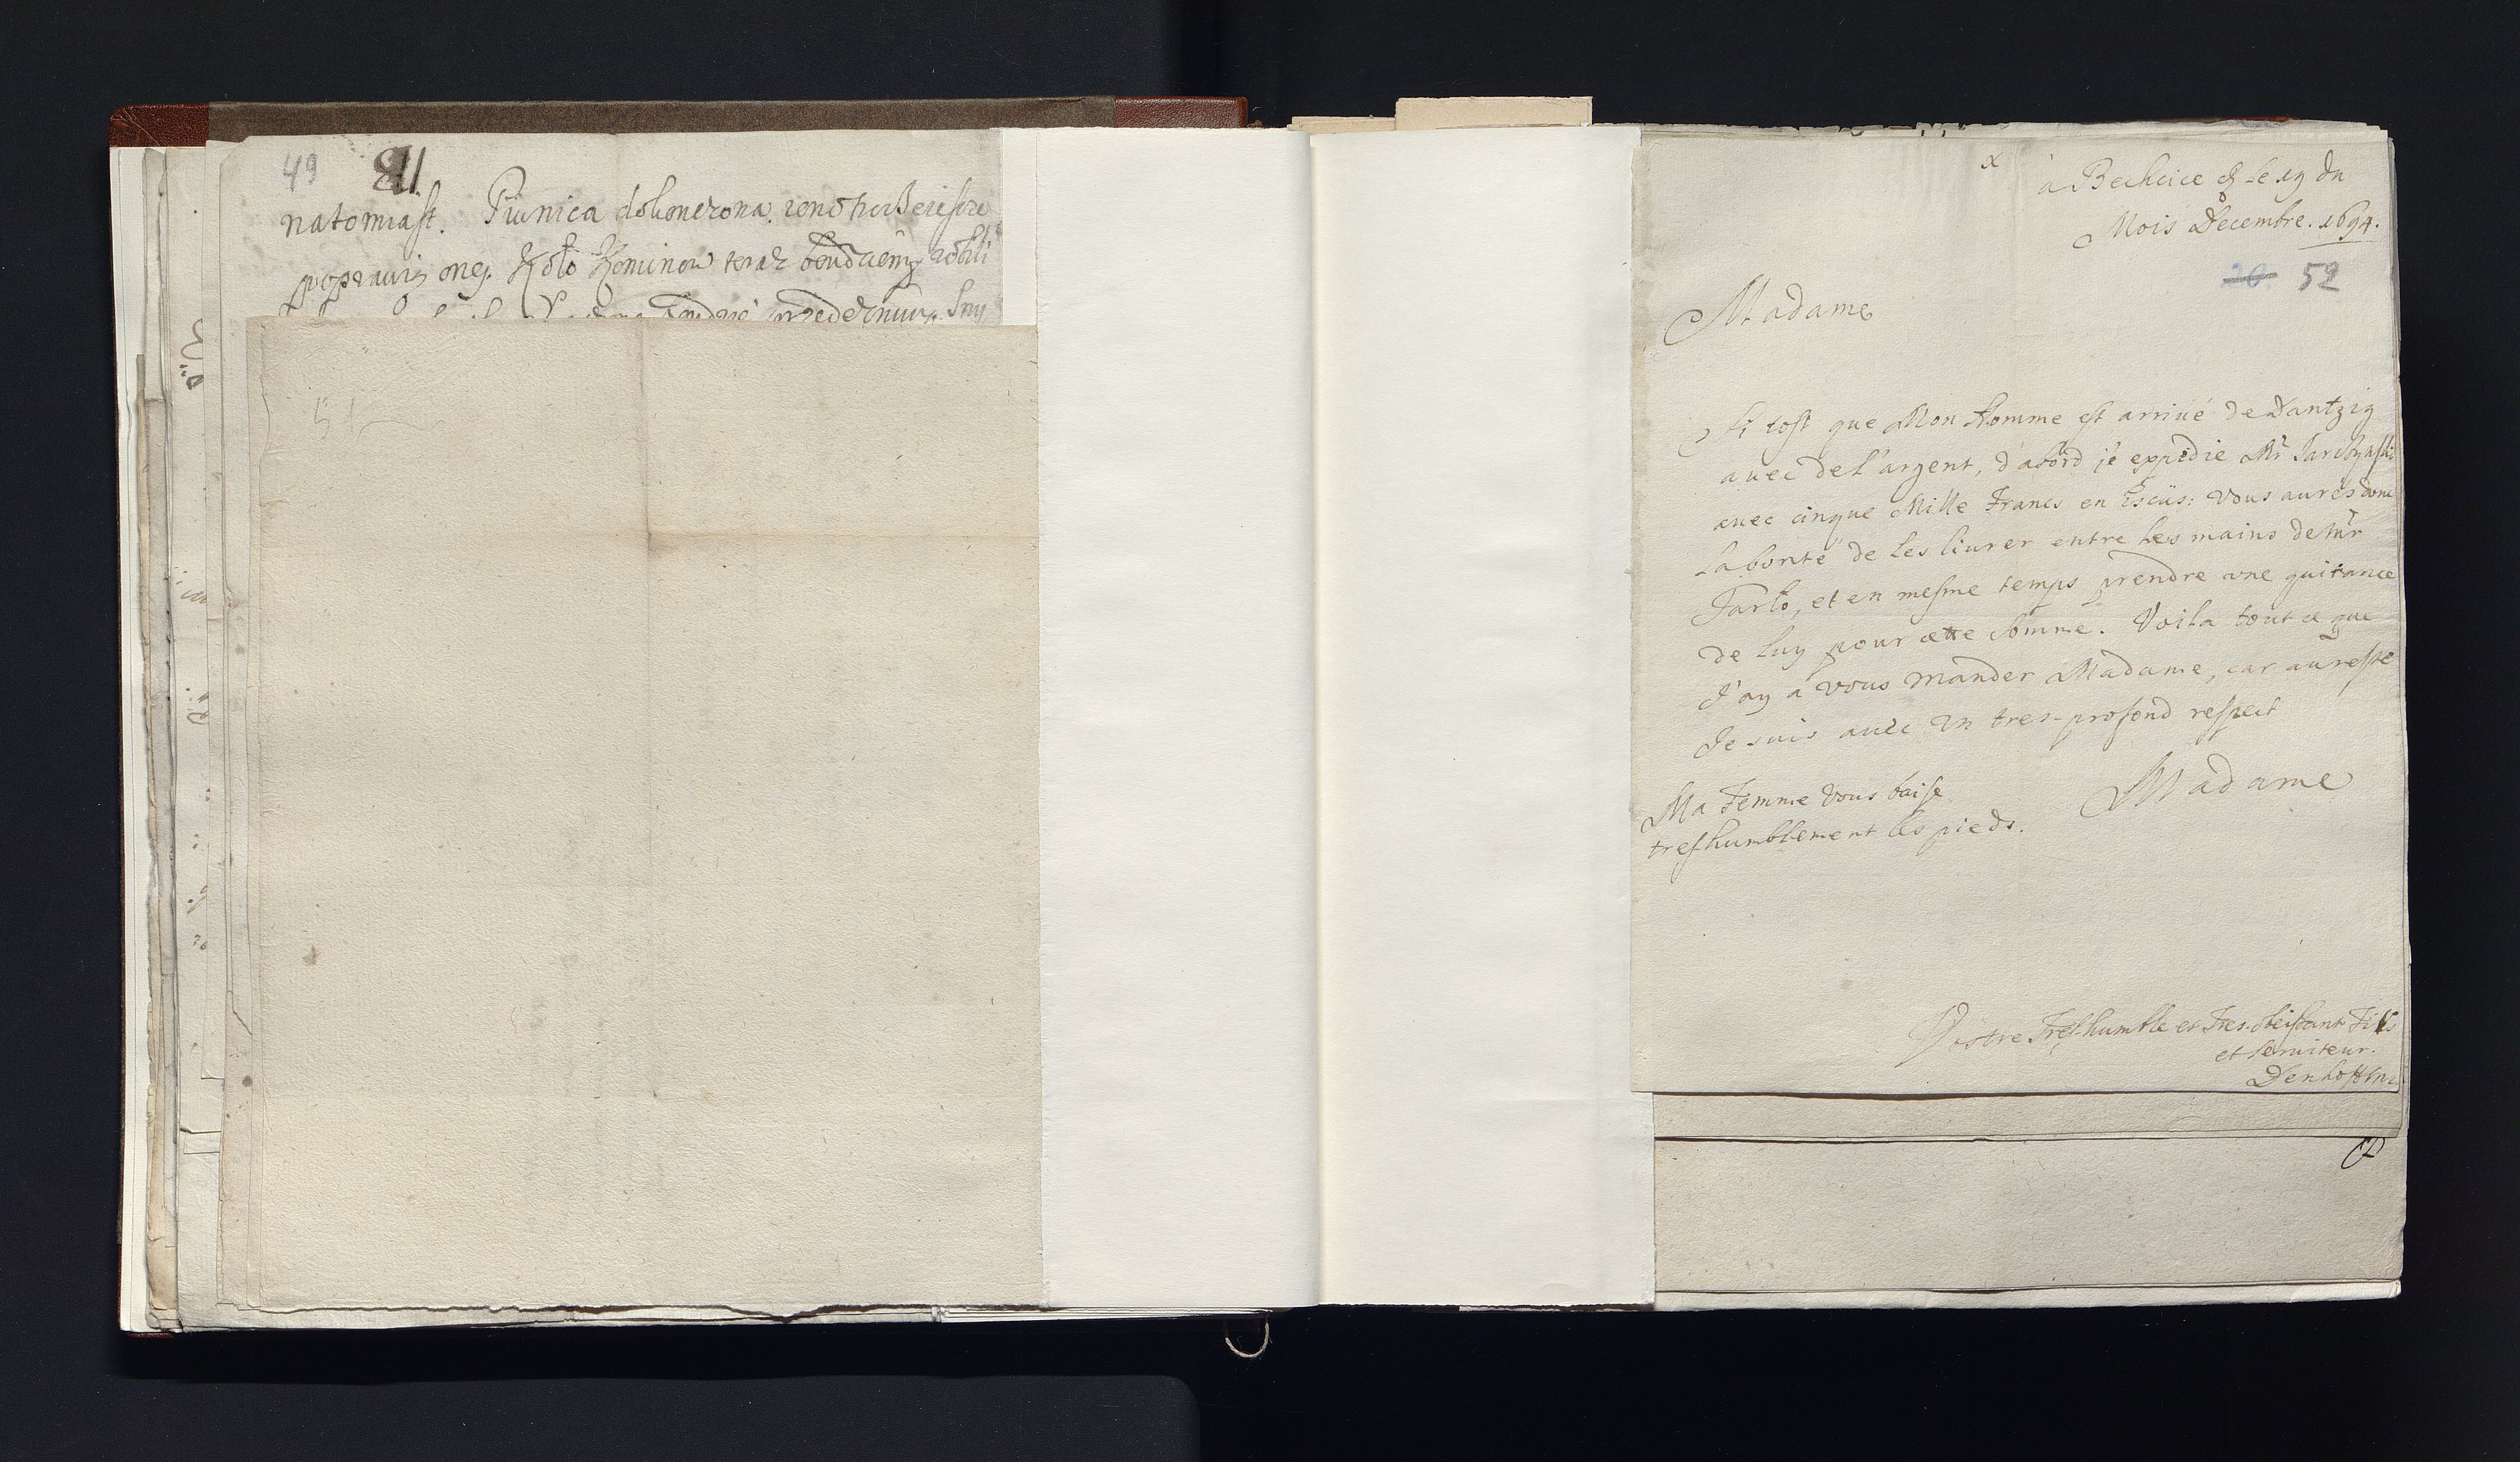 49
natomiast. Piwnica dokonczona.
poprawię oney. Koło Kominow teraz bendziemy robili
51
x
à Bechcice le 19 du
Mois Decembre. 1694.
20 52
Madame
Si tost que Mon Homme est arriué de Dantzig
auec de l'argent, d'abord je expedie Mr
auec cinque Mille Francs en Escüs: Vous aurés donc
la bonté de les liurer entre les mains de Mr
Tarlo, et en mesme temps prendre une quitance
de luy pour cette Somme. Voila tout ce que
J'ay à vous mander Madame, car au reste
Je suis auec un tres-profond respect
Madame
Ma Femme Vous baise
treshumblement les pieds.
Vostre Tres-humble et Tres-obeissant Fils
et seruiteur.
Denhoff